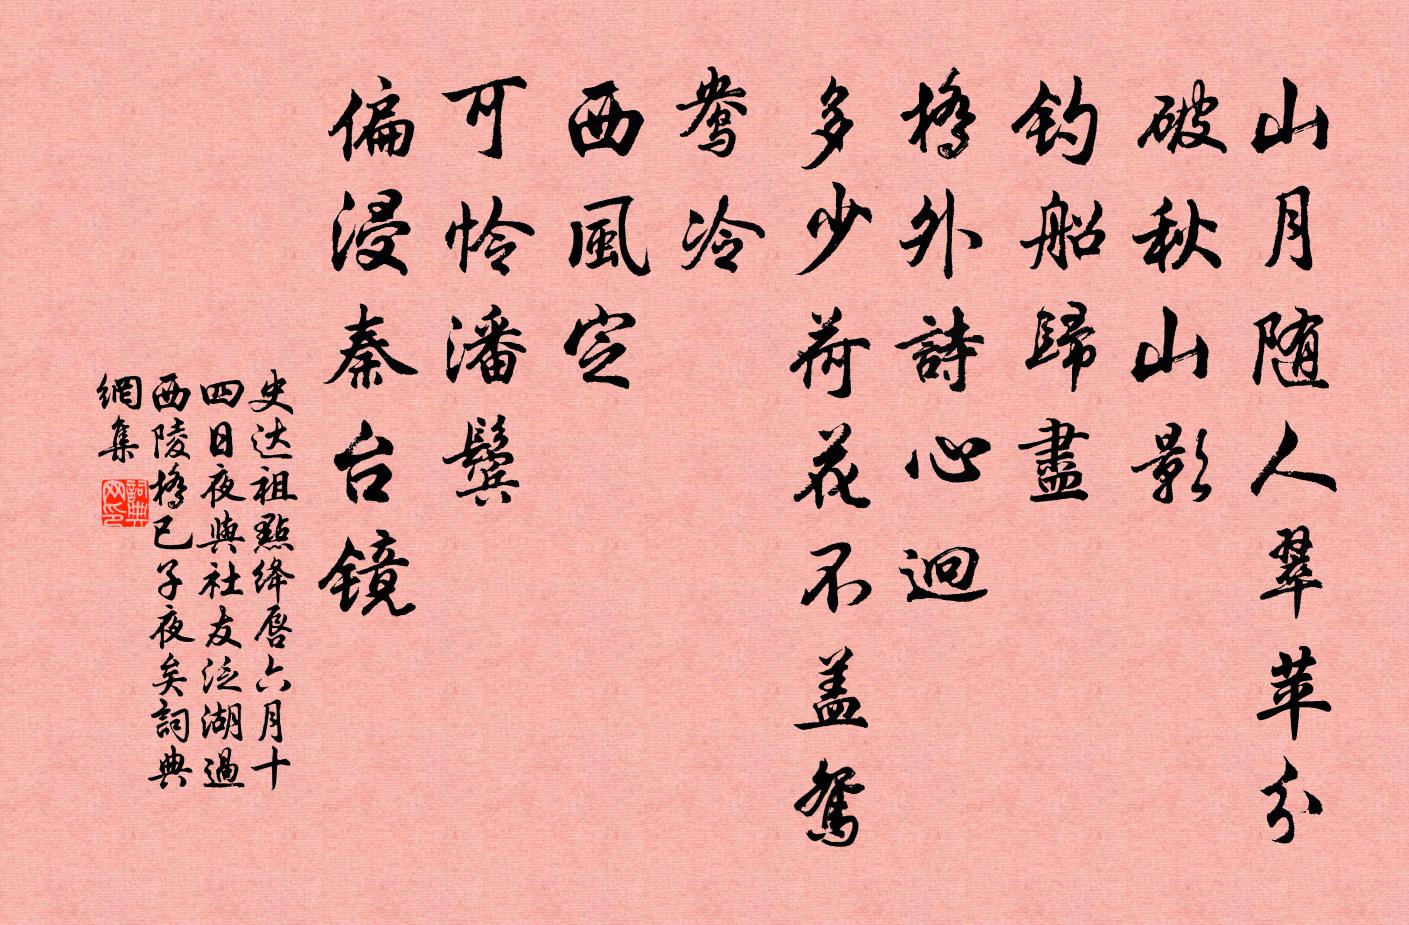 山月随人翠苹分
破秋山影
钓船歸盡
橋外詩心迥
多少荷花不盖鴛
鴦冷
西風定
可怜潘鬢
偏浸秦台镜
史达祖點绛唇六月十
四日夜與社友泛湖過
西陵橋已子夜矣詞典
網集
詞典
网印